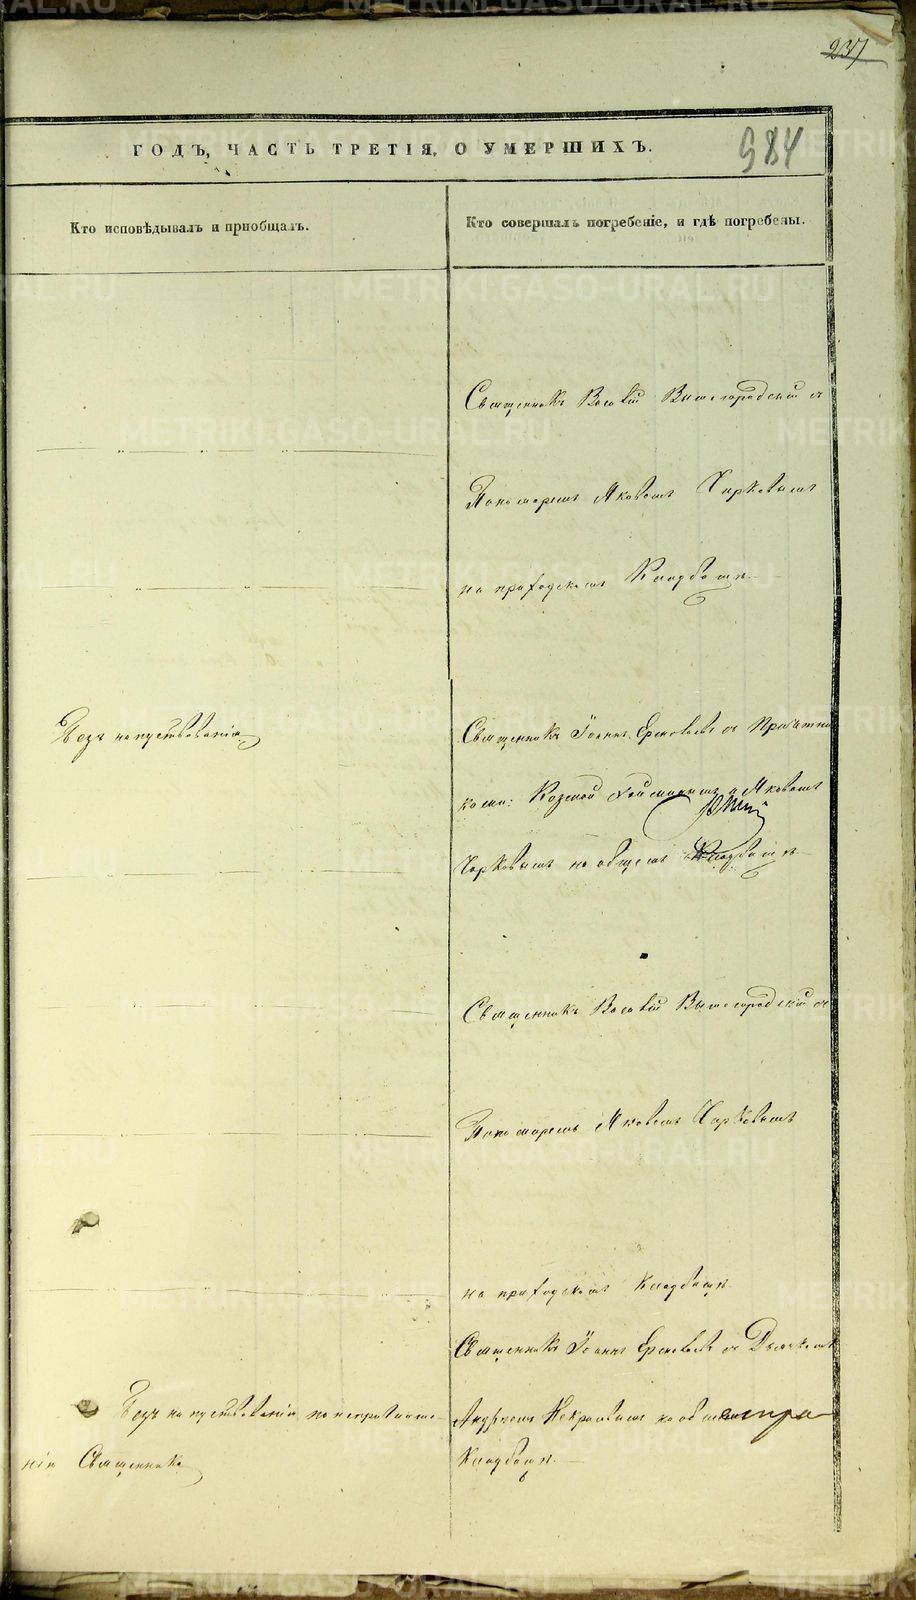 237
ГОДЪ, ЧАСТЬ ТРЕТІЯ, О УМЕРШИХЪ.
984
Кто исповѣдывалъ и пріобщалъ.
Кто совершалъ погребеніе, и гдѣ погребены.
Священникъ Василій Вышегородскій съ
Пономаремъ Яковомъ Чирковымъ
на приходскомъ Кладбищѣ.
Безъ напутствованія
Священникъ Іоаннъ Ереновъ съ Причетни
ками: Козмой и Яковомъ
Чирковымъ на общемъ Кладбищѣ
Священникъ Василій Вышегородскій съ
Пономаремъ Яковомъ Чирковымъ
на приходскомъ Кладбищѣ.
Священникъ Іоаннъ съ Дьячкомъ
Безъ напутствованія по непріглаше-
нію Священника
Андреемъ Некрасовымъ на
Кладбищѣ.
METRIKI.GASO-URAL.RU